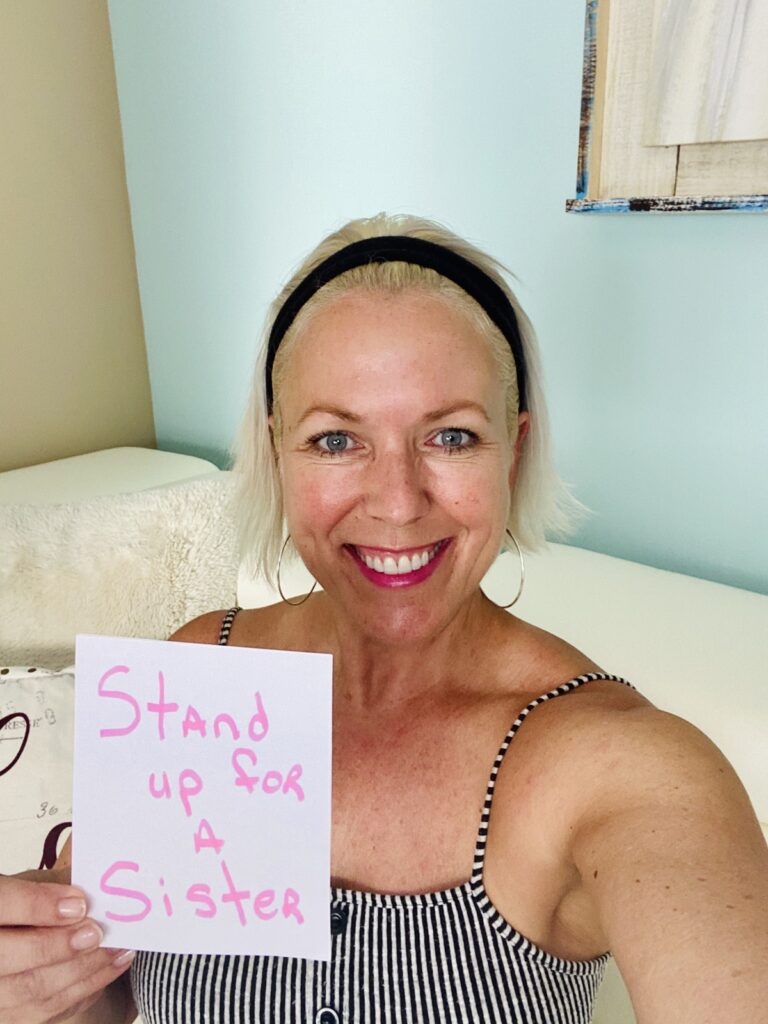 Stand
up for
A
Sister
30